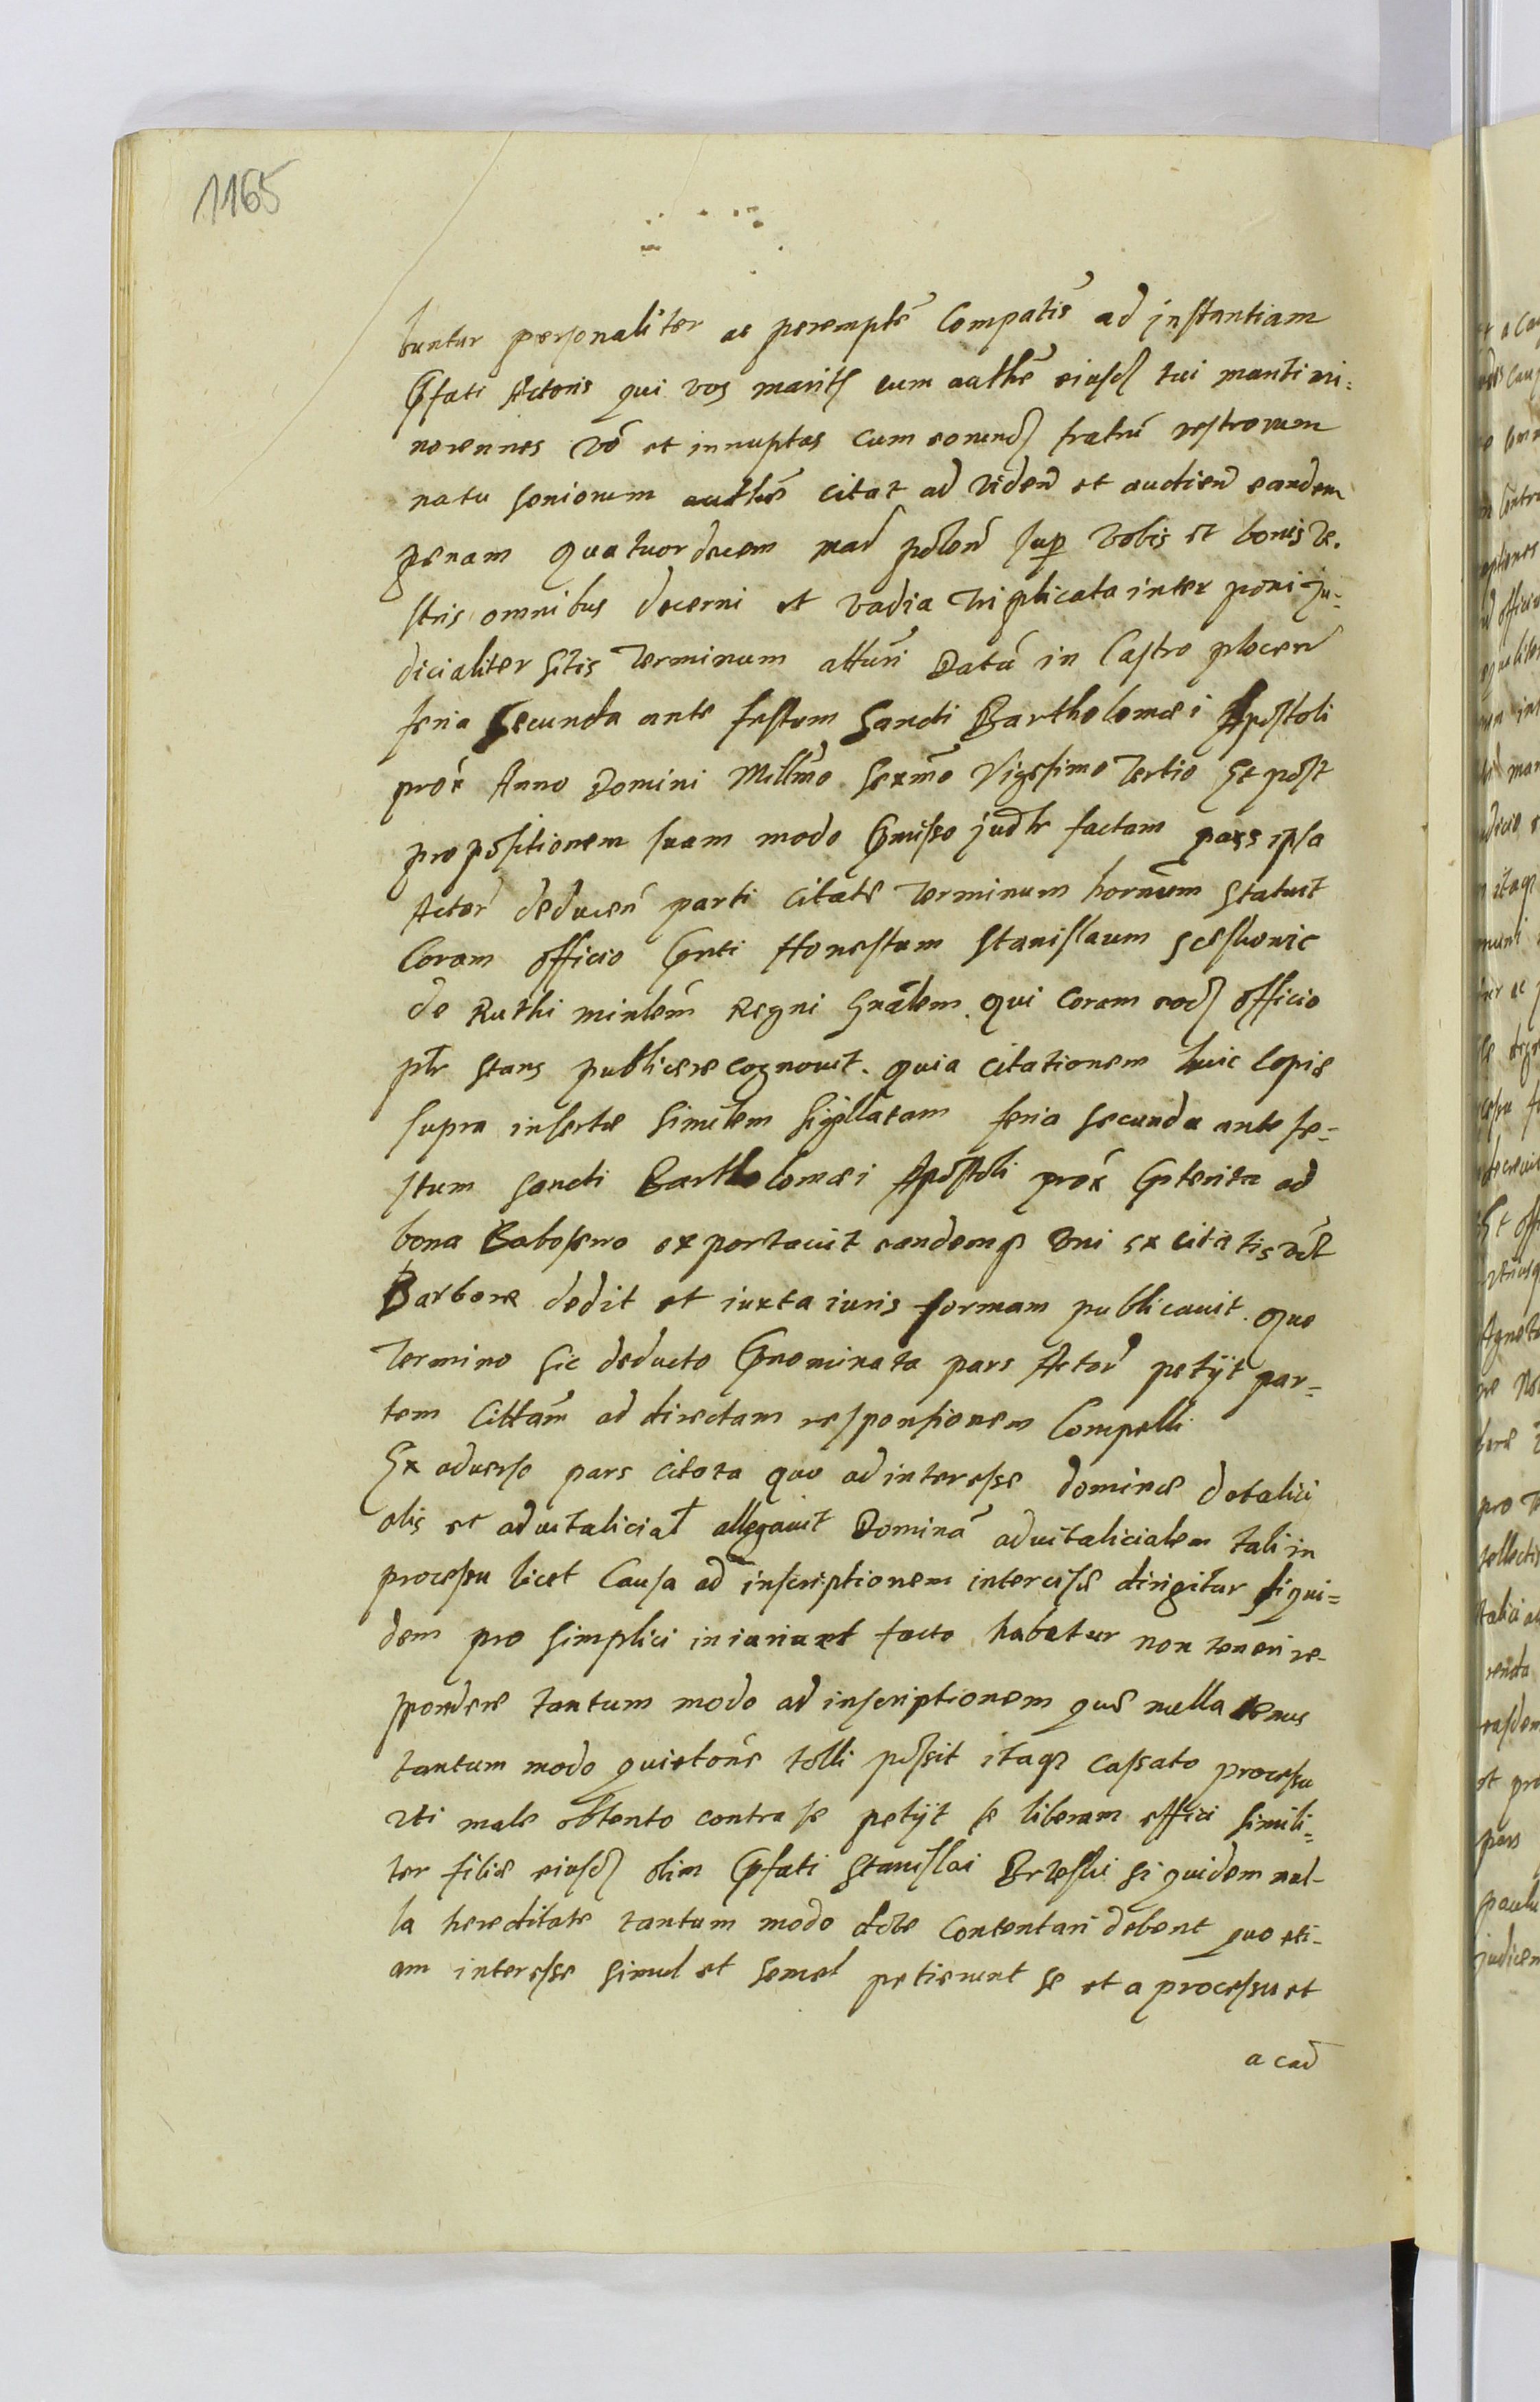 1165
buntur personaliter ac peremptẽ Compatis ad instantiam
Pfati Actoris qui vos marit cum authẽ eiusd tui mariti mi=
norennes võ et innuptas cum eorund fratrũ vestrorum
natu seniorum authẽ citat ad viden̄ et audien̄ eandem
penam quatuordecem mar̄ polon̄ sup vobis et bonis ve.
stris omnibus decerni et vadia triplicata inter poni ju=
dicialiter sitis Terminum atturi Datũ in Castro plocen̄
feria Secunda ante festum Sancti Bartholomæi Apostoli
prox Anno Domini Millmo Sexmo Vigesimo Tertio Et post
propositionem suam modo Pmisso judtr factam pars ipsa
Actor̄ deducen̄ parti citatæ Terminum hornum Statuit
Coram officio Pnti Honestum Stanislaum
de Ruthi minlem Regni Gnalem qui coram eod officio
ptr stans publice recognouit. quia citationem huic Copiæ
supra insertæ similem sigillatam feria secunda ante fe=
stum Sancti Bartholomæi Apostoli prox Pterita ad
bona Baboszewo exportauit eandemq Uni ex citatis vdt
Barboræ dedit et iuxta iuris formam publicauit quo
Termino sic deducto Pnominata pars Actor̄ petyt par=
tem Cittam ad directam responsionem Compelli
Ex aduerso pars citata quo ad interesse dominæ dotalici
alis et aduitalicial allegauit Dominã aduitalicialem tali in
processu licet Causa ad inscriptionem intercisæ dirigitur siqui=
dem pro simplici iniuriarũ facto habetur non teneri re-
spondere tantum modo ad inscriptionem quæ nulla tenus
tantum modo quietone tolli possit itaq cassato processu
uti male obtento contra se petyt se liberam effici simili=
ter filiæ eiusd olim Pfati Stanislai Brzeski siquidem nul-
la hereditate tantum modo dote Contentari debent quo eti-
am interesse simul et semel petierunt se et a processu et
a cad̄